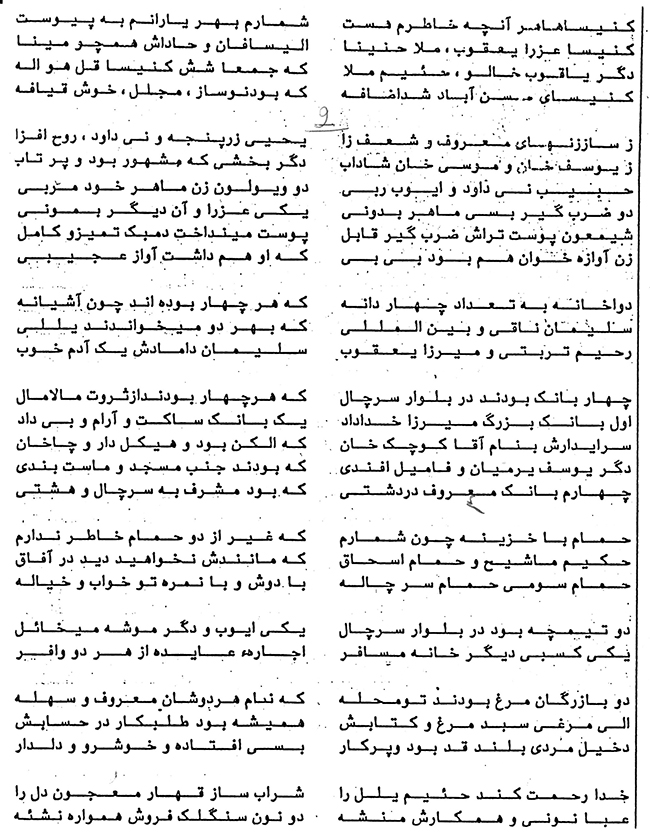 کنیساهاهر آنچه خاطرم هست شمارم بهر یارانم به پیوست
کنیسا عزرا یعقوب، ملا حنینا الیسافان و حاداش همچو مینا
دگر یاقوب خالو، حئیم ملا که جمعا شش کنیسا قل هو اله
کنیسای محسن آباد شداضافه که بودنوساز، مجلل، خوش قیافه
2
ز ساززنهای معروف و شعف زا یحیی زرپنجه و نی داود، روح افزا
ز یوسف خان و موسی خان شاداب دگر بخشی که مشهور بود و پر تاب
حبیب نی داود و ایوب ربی دو ویولون زن ماهر خود مربی
دو ضرب گیر بسی ماهر بدونی یکی عزرا و آن دیگر بمونی
شیمعون پوست تراش ضرب گیر قابل پوست مینداخت دمبک تمیزو کامل
زن آوازه خوان هم بود بی بی که او هم داشت آواز عجیبی
دواخانه به تعداد چهار دانه که هر چهار بوده اند چون آشیانه
سلیمان ناقی و بین المللی که بهر دو میخواندند یللی
رحیم تربتی و میرزا یعقوب سلیمان دامادش یک آدم خوب
چهار بانک بودند در بلوار سرچال که هرچهار بودندازثروت مالامال
اول بانک بزرگ میرزا خداداد یک بانک ساکت و آرام و بی داد
سرایدارش بنام آقا کوچک خان که الکن بود و هیکل دار و چاخان
دگر یوسف یرمیان و فامیل افندی که بودند جنب مسجد و ماست بندی
چهارم بانک معروف دردشتی که بود مشرف به سرچال و هشتی
حمام با خزینه چون شمارم که غیر از دو حمام خاطر ندارم
حکیم ماشیح و حمام اسحاق که مانندش نخواهید دید در آفاق
حمام سومی حمام سر چاله با دوش و با نمره تو خواب و خیاله
دو تیمچه بود در بلوار سرچال یکی ایوب و دگر موشه میخائل
یکی کسبی دیگر خانه مسافر اجاره عایده از هر دو وافر
دو بازرگان مرغ بودند تومحله که نام هردوشان معروف و سهله
الی مرغی سبد مرغ و کتابش همیشه بود طلبکار در حسابش
دخیل مردی بلند قد بود وپرکار بسی افتاده و خوشرو و دلدار
خدا رحمت کند حئیم یلل را شراب ساز قهار معجون دل را
عبا نونی و همکارش منشه دو نون سنگلک فروش همواره نشئه